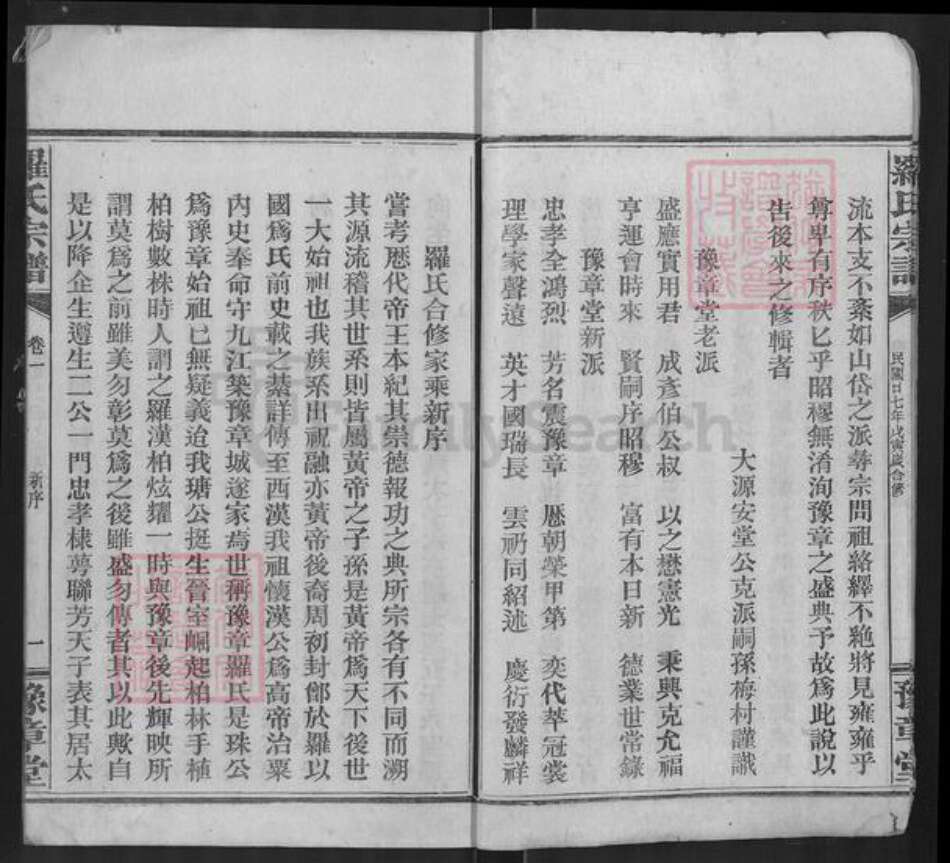 羅氏宗譜
民國廿七年戊寅歲合修
豫章堂
流本支不紊如山岱之派尋宗問祖絡繹不絕將見雍雍乎
尊卑有序秩匕乎昭穆無淆洵豫章之盛典予故爲此說以
告後來之修輯者
大源安堂公克派嗣孫梅村謹識
豫章堂老派
盛應實用君 成彥伯公叔 以之懋憲光 秉興克允福
亨運會時來 賢嗣序昭穆 富有本日新 德業世常錄
豫章堂新派
忠孝全鴻烈 芳名震豫章 歷朝榮甲第 奕代萃冠裳
理學家聲遠 英才國瑞長 雲礽同紹述 慶衍發麟祥
羅氏合修家乘新序
嘗考歷代帝王本紀其崇德報功之典所宗各有不同而溯
其源流稽其世系則皆屬黃帝之子孫是黃帝爲天下後世
一大始祖也我族系出祝融亦黃帝後裔周初封鄃於羅以
國爲氏前史載之綦詳傳至西漢我祖懷漢公爲高帝治粟
內史奉命守九江築豫章城遂家焉世稱豫章羅氏是珠公
爲豫章始祖已無疑義迨我瑭公挺生晉室崛起柏林手植
柏樹數株時人謂之羅漢柏炫耀一時與豫章後先輝映所
謂莫爲之前雖美勿彰莫爲之後雖盛勿傳者其以此歟自
是以降企生遵生二公一門忠孝棣萼聯芳天子表其居太
羅氏宗譜
卷一
新序
一
豫章堂
FamilySearch